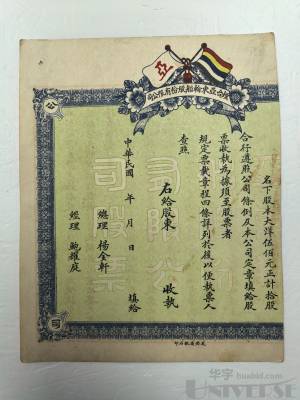 亞
司公限有份股船輪東亞合政
公
司
司股
公票
名下股本大洋伍佰元正計拾股
合行遵照公司條例及本公司定章填給股
票收執為據須至股票者
規定票載章程四條詳列於後以便執票人
查照
右給股東 收執
中華民國 年 月 日 填給
總理 楊金軒
經理 鮑耀庭
华宇 huabid.com
UNIVERSE